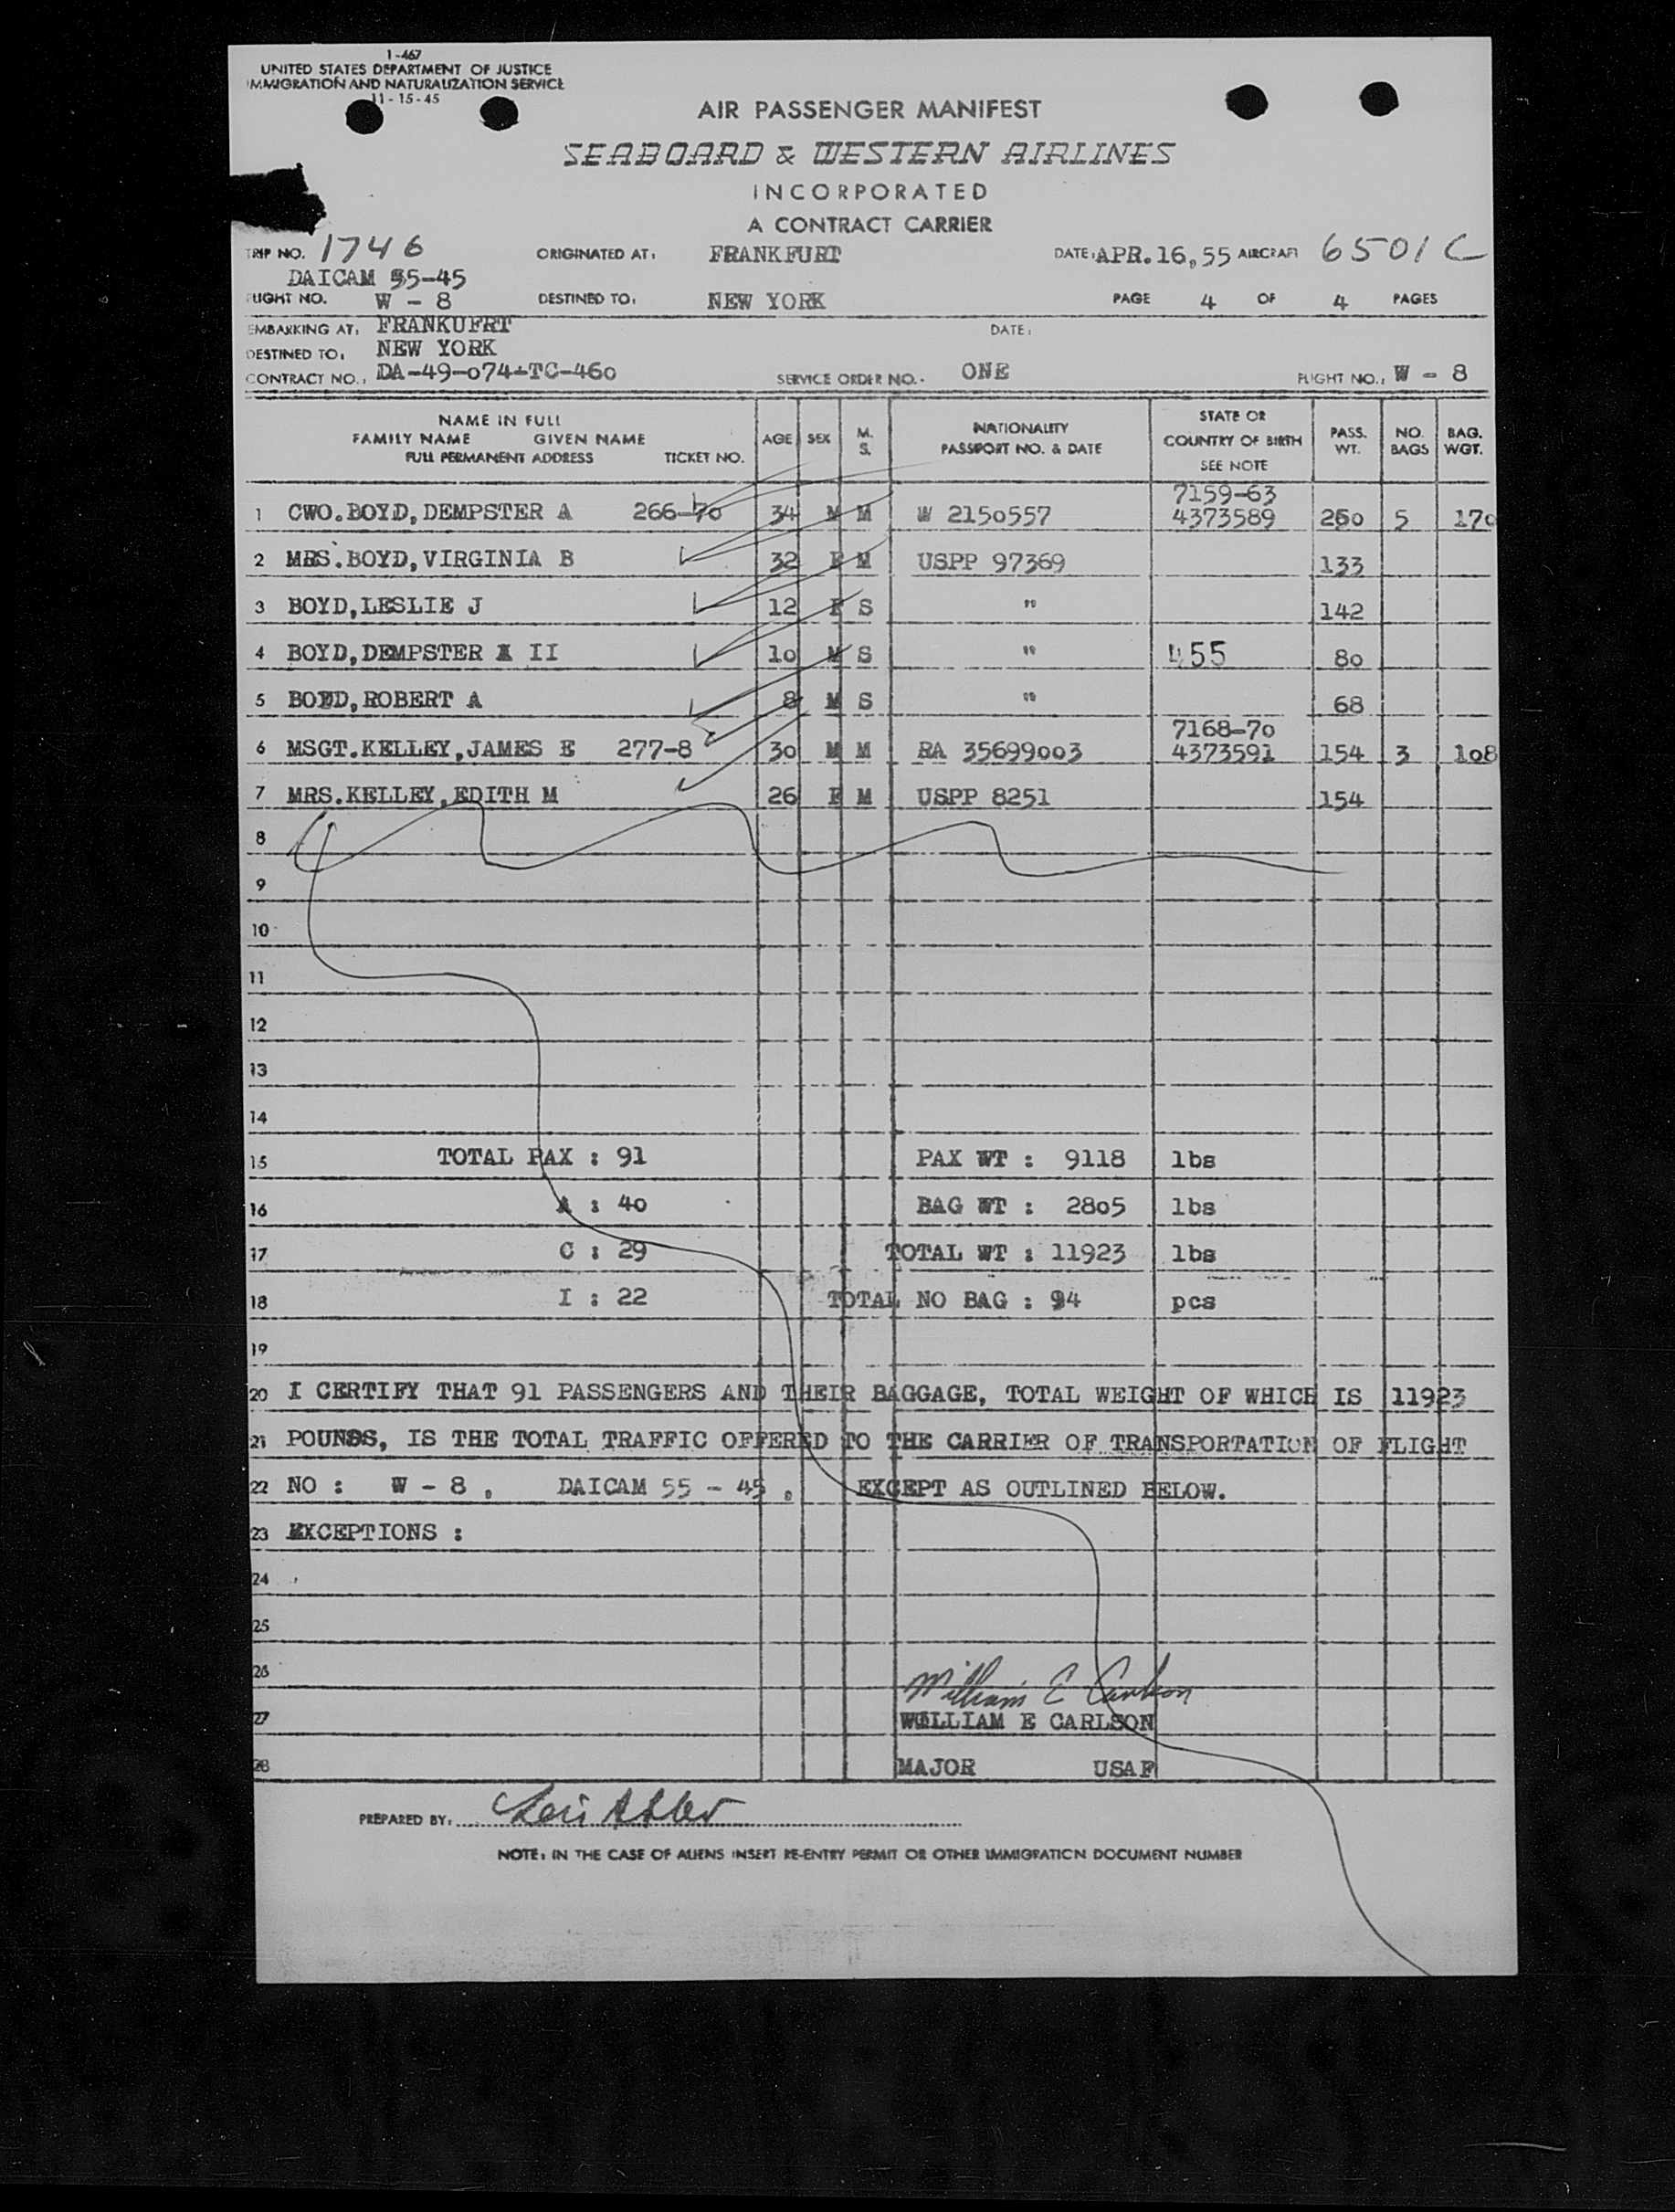 1-467
UNITED STATES DEPARTMENT OF JUSTICE
IMMIGRATION AND NATURALIZATION SERVICE
11-15-45
AIR PASSENGER MANIFEST
SEABOARD & WESTERN AIRLINES
INCORPORATED
A CONTRACT CARRIER
TRIP NO. 1746 ORIGINATED AT: FRANKFURT DATE: APR.16,55 AIRCRAFT 6501C
DAICAM 55-45
FLIGHT NO. W - 8 DESTINED TO: NEW YORK PAGE 4 OF 4 PAGES
EMBARKING AT: FRANKUFRT DATE:
DESTINED TO: NEW YORK
CONTRACT NO.: DA-49-074-TC-460 SERVICE ORDER NO.- ONE FLIGHT NO.: W - 8
NAME IN FULL
FAMILY NAME GIVEN NAME
FULL PERMANENT ADDRESS TICKET NO. AGE SEX M. S. NATIONALITY PASSPORT NO. & DATE STATE OR COUNTRY OF BIRTH SEE NOTE PASS. WT. NO. BAGS BAG. WGT.
7159-63
1 CWO.BOYD,DEMPSTER A 266-70 34 M M W 2150557 4373589 260 5 170
2 MRS.BOYD,VIRGINIA B 32 F M USPP 97369 133
3 BOYD,LESLIE J 12 F S " 142
4 BOYD,DEMPSTER A II 10 M S " 455 80
5 BOYD,ROBERT A 8 M S " 68
7168-70
6 MSGT.KELLEY,JAMES E 277-8 30 M M RA 35699003 4373591 154 3 108
7 MRS.KELLEY,EDITH M 26 F M USPP 8251 154
8
9
10
11
12
13
14
15 TOTAL PAX : 91 PAX WT : 9118 lbs
16 A : 40 BAG WT : 2805 lbs
17 C : 29 TOTAL WT : 11923 lbs
18 I : 22 TOTAL NO BAG : 94 pcs
19
20 I CERTIFY THAT 91 PASSENGERS AND THEIR BAGGAGE, TOTAL WEIGHT OF WHICH IS 11923
21 POUNDS, IS THE TOTAL TRAFFIC OFFERED TO THE CARRIER OF TRANSPORTATION OF FLIGHT
22 NO : W - 8 , DAICAM 55 - 45 , EXCEPT AS OUTLINED BELOW.
23 EXCEPTIONS :
24
25
26 William E Carlson
27 WILLIAM E CARLSON
28 MAJOR USAF
PREPARED BY:
NOTE: IN THE CASE OF ALIENS INSERT RE-ENTRY PERMIT OR OTHER IMMIGRATION DOCUMENT NUMBER